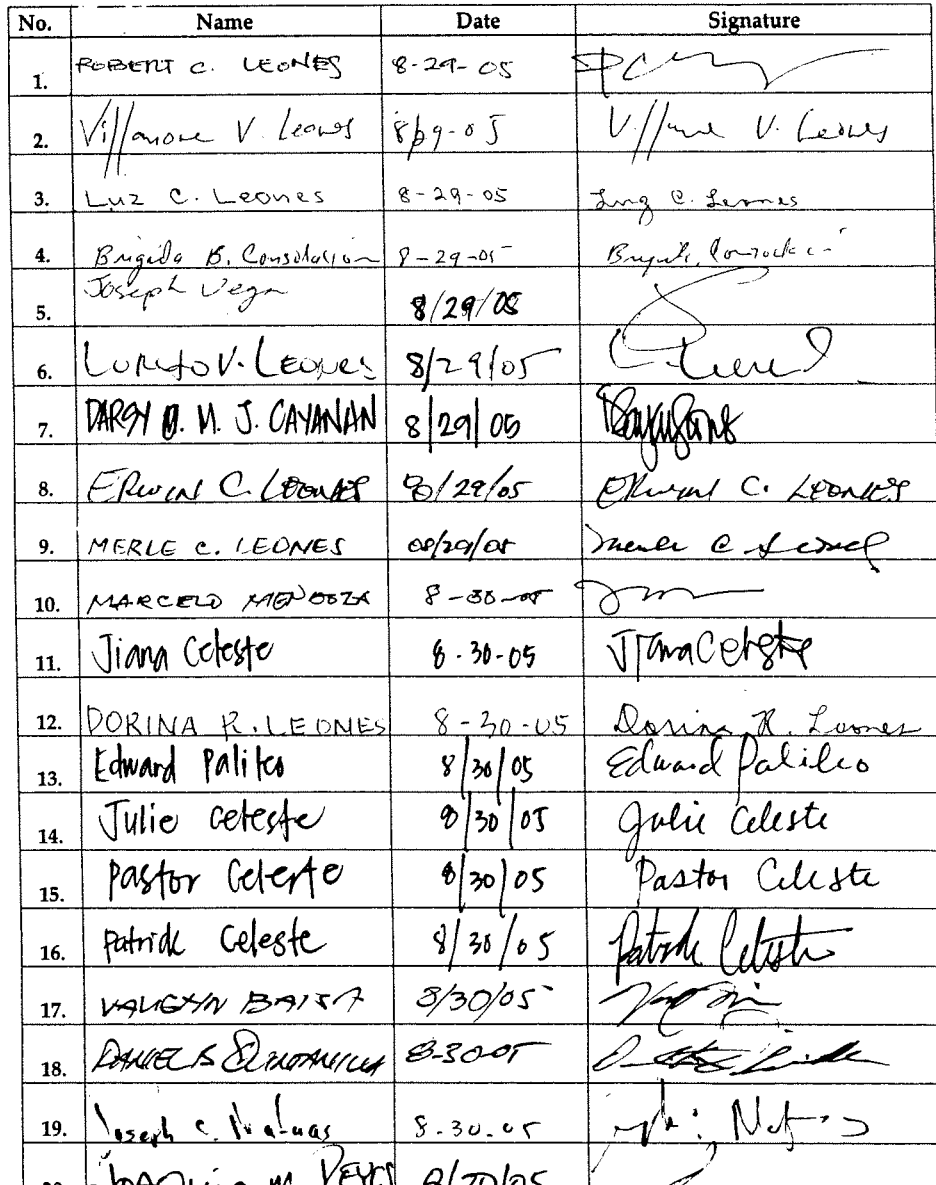 No. Name Date Signature
1. ROBERT C. LEONES 8-29-05
2. Villamore V. Leones 8/29-05 Villamore V. Leones
3. Luz C. Leones 8-29-05 Luz C. Leones
4. Brigida B. Consolacion 8-29-05 Brigida Consolacion
5. Joseph Vega 8/29/05
6. LORETO V. LEONES 8/29/05
7. DARCY M. J. CAYANAN 8/29/05
8. ERWIN C. LEONES 8/29/05 ERWIN C. LEONES
9. MERLE C. LEONES 08/29/05 Merle C Leones
10. MARCELO MENDOZA 8-30-05
11. Jiana Celeste 8-30-05 Jiana Celeste
12. DORINA R. LEONES 8-30-05 Dorina R. Leones
13. Edward Palileo 8/30/05 Edward Palileo
14. Julie Celeste 8/30/05 Julie Celeste
15. Pastor Celeste 8/30/05 Pastor Celeste
16. Patrick Celeste 8/30/05 Patrick Celeste
17. VAUGHN BAISA 8/30/05
18. DANIEL B QUINTANILLA 8-30-05
19. Joseph C. 8.30.05